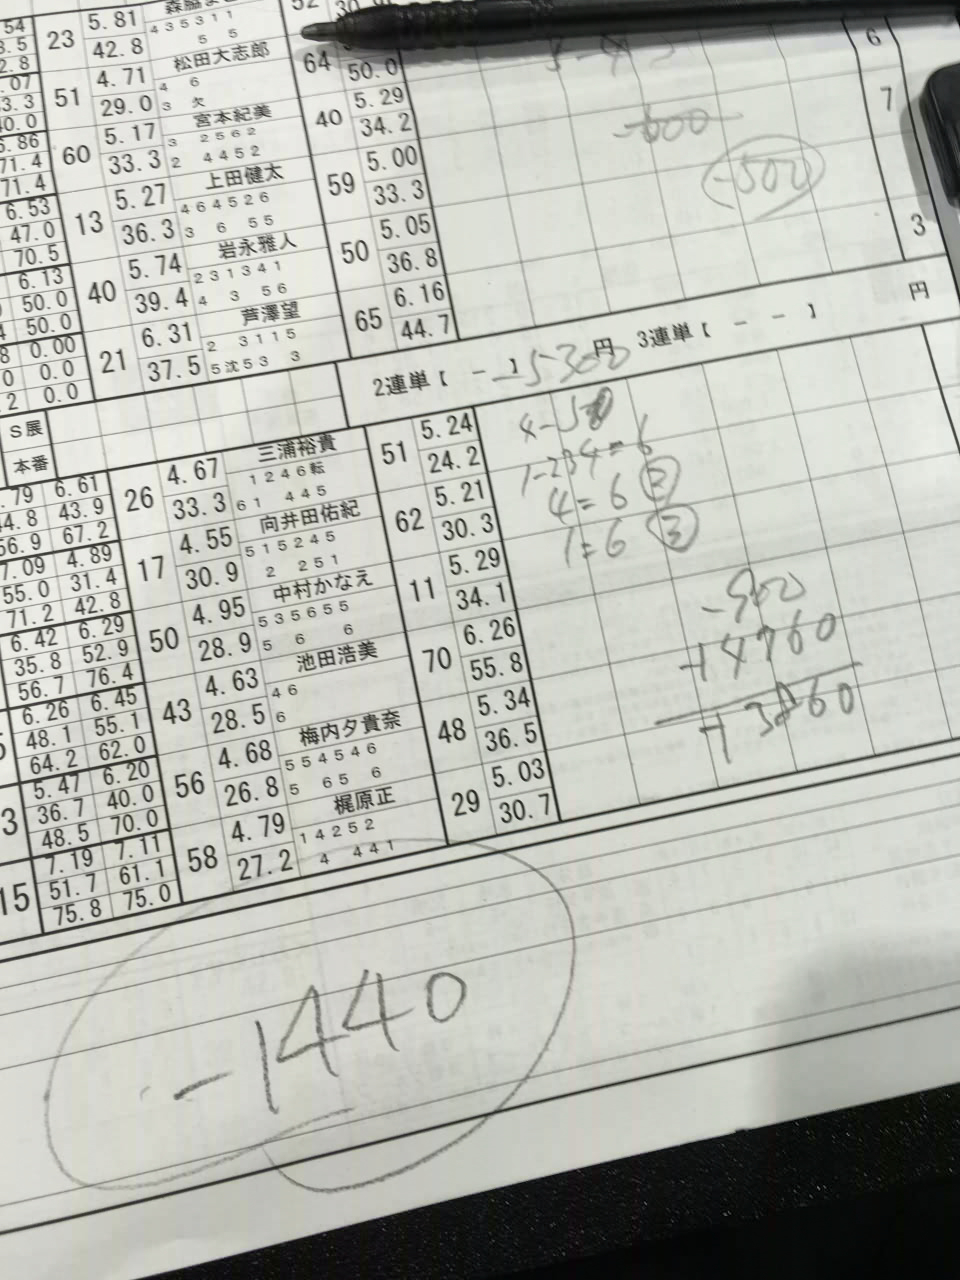 54 5.81 森脇
3.5 23 42.8 4 3 5 3 1 1
2.8 5 5
.07 51 4.71 松田大志郎 64
33.3 29.0 4 6 50.0
40.0 3 欠
5.86 60 5.17 宮本紀美 40 5.29
71.4 33.3 3 2 5 6 2 34.2
71.4 2 4 4 5 2
6.53 13 5.27 上田健太 59 5.00
47.0 36.3 4 6 4 5 2 6 33.3
70.5 3 6 5 5
6.13 40 5.74 岩永雅人 50 5.05
50.0 39.4 2 3 1 3 4 1 36.8
50.0 4 3 5 6
0.00 21 6.31 芦澤望 65 6.16
0.0 37.5 2 3 1 1 5 44.7
0.0 5 沈 5 3 3
6
7
3
-600
-500
円
2連単【 - 】 円 3連単【 - - 】
-5300
S展
本番
.79 6.61 26 4.67 三浦裕貴 51 5.24
44.8 43.9 33.3 1 2 4 6 転 24.2
56.9 67.2 6 1 4 4 5
7.09 4.89 17 4.55 向井田佑紀 62 5.21
55.0 31.4 30.9 5 1 5 2 4 5 30.3
71.2 42.8 2 2 5 1
6.42 6.29 50 4.95 中村かなえ 11 5.29
35.8 52.9 28.9 5 3 5 6 5 5 34.1
56.7 76.4 5 6 6
6.26 6.45 43 4.63 池田浩美 70 6.26
48.1 55.1 28.5 4 6 55.8
64.2 62.0 6
5.47 6.20 56 4.68 梅内夕貴奈 48 5.34
36.7 40.0 26.8 5 5 4 5 4 6 36.5
48.5 70.0 5 6 5 6
15 7.19 7.11 58 4.79 梶原正 29 5.03
51.7 61.1 27.2 1 4 2 5 2 30.7
75.8 75.0 4 4 4 1
1-234=6
4=6 ③
1=6 ③
-900
+4760
+3860
-1440